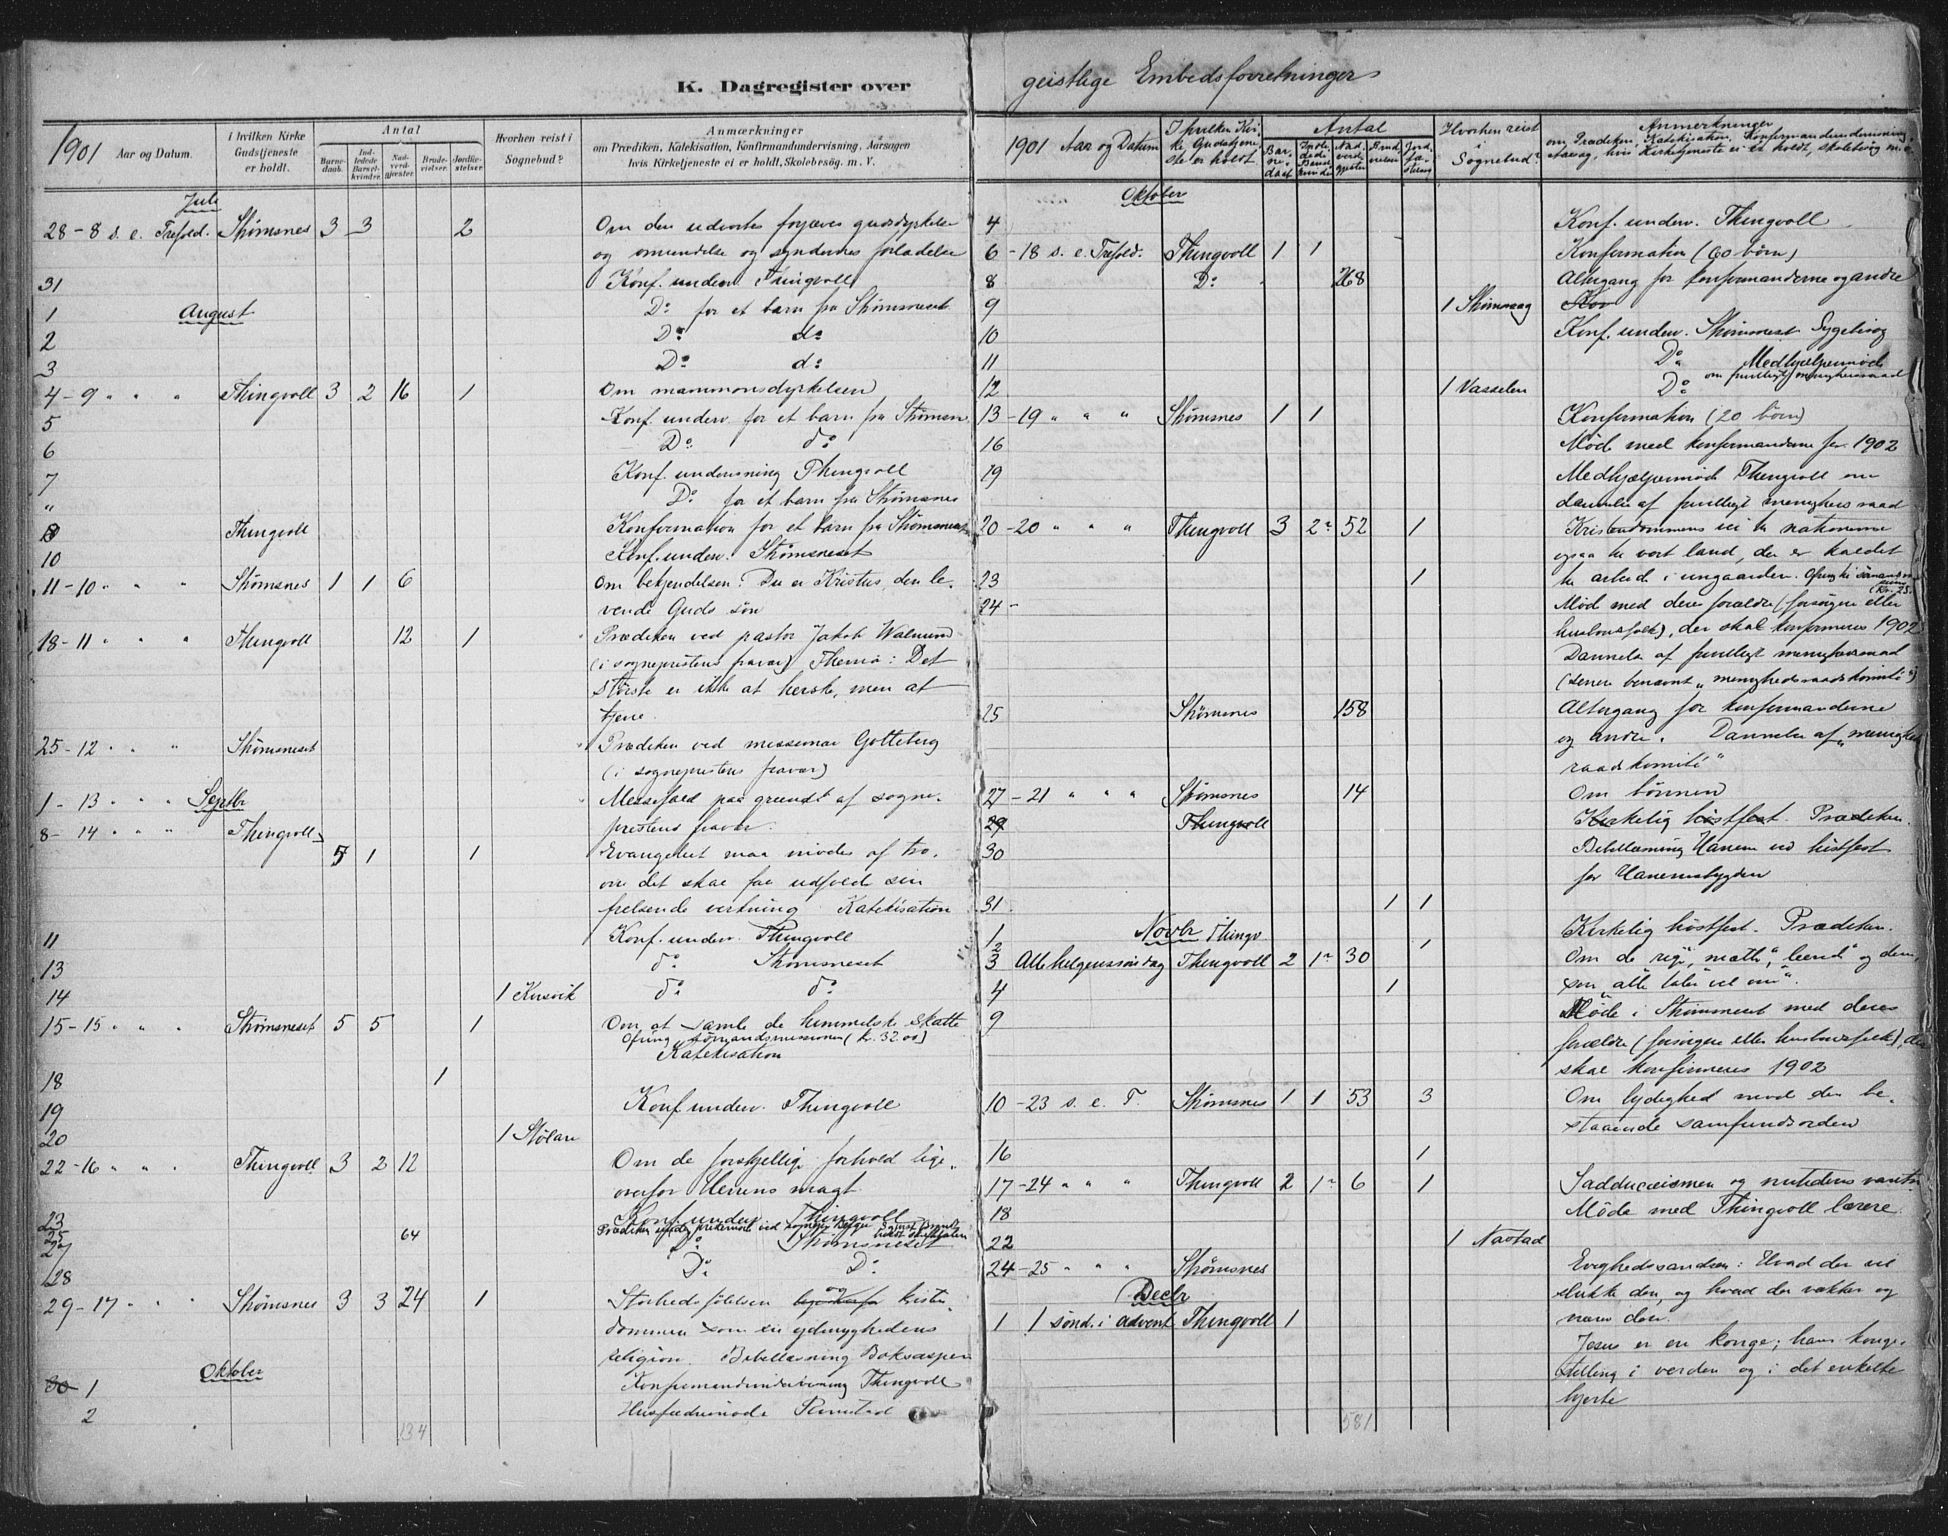 K. Dagregister over
1901 Aar og Datum. I hvilken Kirke Gudstjeneste er holdt. Antal Barnedaab. Indledede Barselkvinder. Nadverdgjester. Brudevielser. Jordfæstelser Hvorhen reist i Sognebud? Anmærkninger om Prædiken, Katekisation, Konfirmandundervisning, Aarsagen hvis Kirketjeneste ei er holdt, Skolebesøg. m. V.
Juli
28 - 8 s. e. Trefold. Strømsnes 3 3 2 Om den udvortes forjæves gudsdyrkelse
og omvendelse og syndernes forladelse
31 Konf. underv. Thingvoll
August
1 Do for et barn fra Strømsneset
2 Do do
3 Do do
4 - 9 " " " Thingvoll 3 2 16 1 Om mammonsdyrkelsen
5 Konf. underv. for et barn fra Strømsn.
6 Do do
7 Konf. undervisning Thingvoll
" Do for et barn fra Strømsnes
8 Thingvoll Konfirmation for et barn fra Strømsneset
10 Konf. underv. Strømsneset
11 - 10 " " " Strømsnes 1 1 6 Om bekjendelsen: Du er Kristus, den le-
vende Guds søn
18 - 11 " " " Thingvoll 12 1 Prædiken ved pastor Jakob Walnum
(i sogneprestens fravær) Thema: Det
største er ikke at herske, men at
tjene.
25 - 12 " " " Strømsneset Prædiken ved messemæ Gotteberg
(i sogneprestens fravær)
Septbr
1 - 13 " " " Messefald paa grundt af sogne-
prestens fravær.
8 - 14 " " " Thingvoll 5 1 1 Evangeliet maa mødes af tro
om det skal faa udfolde sin
frelsende virkning Katekisation
11 Konf. underv. Thingvoll
13 do Strømsneset
14 1 Kusvik do do
15 - 15 " " " Strømsneset 5 5 1 Om at samle de himmelske skatte
Ofring sømandsmissionen (kr. 32.00)
Katekisation
18 1
19 Konf underv. Thingvoll
20 1 Stølan
22 - 16 " " " Thingvoll 3 2 12 Om de forskjellige forhold lige-
overfor Herrens magt
23 Konf. underv Thingvoll
25 64 Prædiken
27 Do Strømsneset
28 Do Do
29 - 17 " " " Strømsnes 3 3 24 1 Storhedsfølelsen og kristen-
dommen som en ydmyghedens
religion. Bibellæsning Boksaspen
Oktober
30 1 Konfirmandundervisning Thingvoll
2 Husfædremøde Rimstad
134
geistlige Embedsforretninger
1901 Aar og Datum I hvilken Kirke Gudstjeneste er holdt Antal Barnedaab Indledede Barselkvinder Nadverdgjester Brudevielser Jordfæstelser Hvorhen reist i Sognebud? Anmerkninger om Prædiken, Katekisation, Konfirmandundervisning, Aarsag, hvis Kirketjeneste ei er holdt, skolebesøg m. v.
Oktober
4 Konf. underv. Thingvoll
6 - 18 s. e. Trefold. Thingvoll 1 1 Konfirmation (60 børn)
8 Do 268 Altergang for konfirmanderne og andre
9 1 Strømsvaag Kon
10 Konf. underv. Strømsneset. Sygebesøg
11 Do Medhjælpermøde
12 1 Vasselen Do om frivilligt menighedsraad
13 - 19 " " " Strømsnes 1 1 Konfirmation (20 børn)
16 Møde med konfirmanderne for 1902
19 Medhjælpermøde Thingvoll om
dannelse af frivilligt menigheds raad
20 - 20 " " " Thingvoll 3 2 52 1 Kristendommens vei til nationerne
ogsaa til vort land, der er kaldet
23 1 til arbeid i vingaarden. Ofring til sømandsm (Kr. 25.
24 - Møde med deres forældre (forsørgere eller
husbondsfolk), der skal konfirmeres 1902
Dannelse af frivilligt menighedsraad
(senere benævnt "menighedsraadskomité")
25 Strømsnes 158 Altergang for konfirmanderne
og andre. Dannelse af "menigheds
raadskomité"
27 - 21 " " " Strømsnes 14 Om bønnen
29 Thingvoll Kirkelig høstfest. Prædiken.
30 Bibellæsning Hanem ved høstfest
for Hanemsbygden
31 1 1
Novbr
1 Thingv. Kirkelig høstfest. Prædiken.
2 1
3 Allehelgenssøndag Thingvoll 2 1 30 Om de rige, "mætte", "leende" og dem,
4 1 som "alle taler vel om".
9 Møde i Strømsneset med deres
forældre (forsørgere eller husbondsfolk), der
skal konfirmeres 1902
10 - 23 s. e. T. Strømsnes 1 1 53 3 Om lydighed mod den be-
staaende samfundsorden
16 1
17 - 24 " " " Thingvoll 2 1 6 1 Sadducæismen og nutidens vantro
18 Møde med Thingvoll lærere
22 1 Nastad
24 - 25 " " " Strømsnes Evighedssandsen: Hvad der vil
slukke den, og hvad der vækker og
Decbr
nærer den.
1 1 sønd. i advent Thingvoll 1 Jesus er en konge; hans konge-
stilling i verden og i det enkelte
hjerte
581